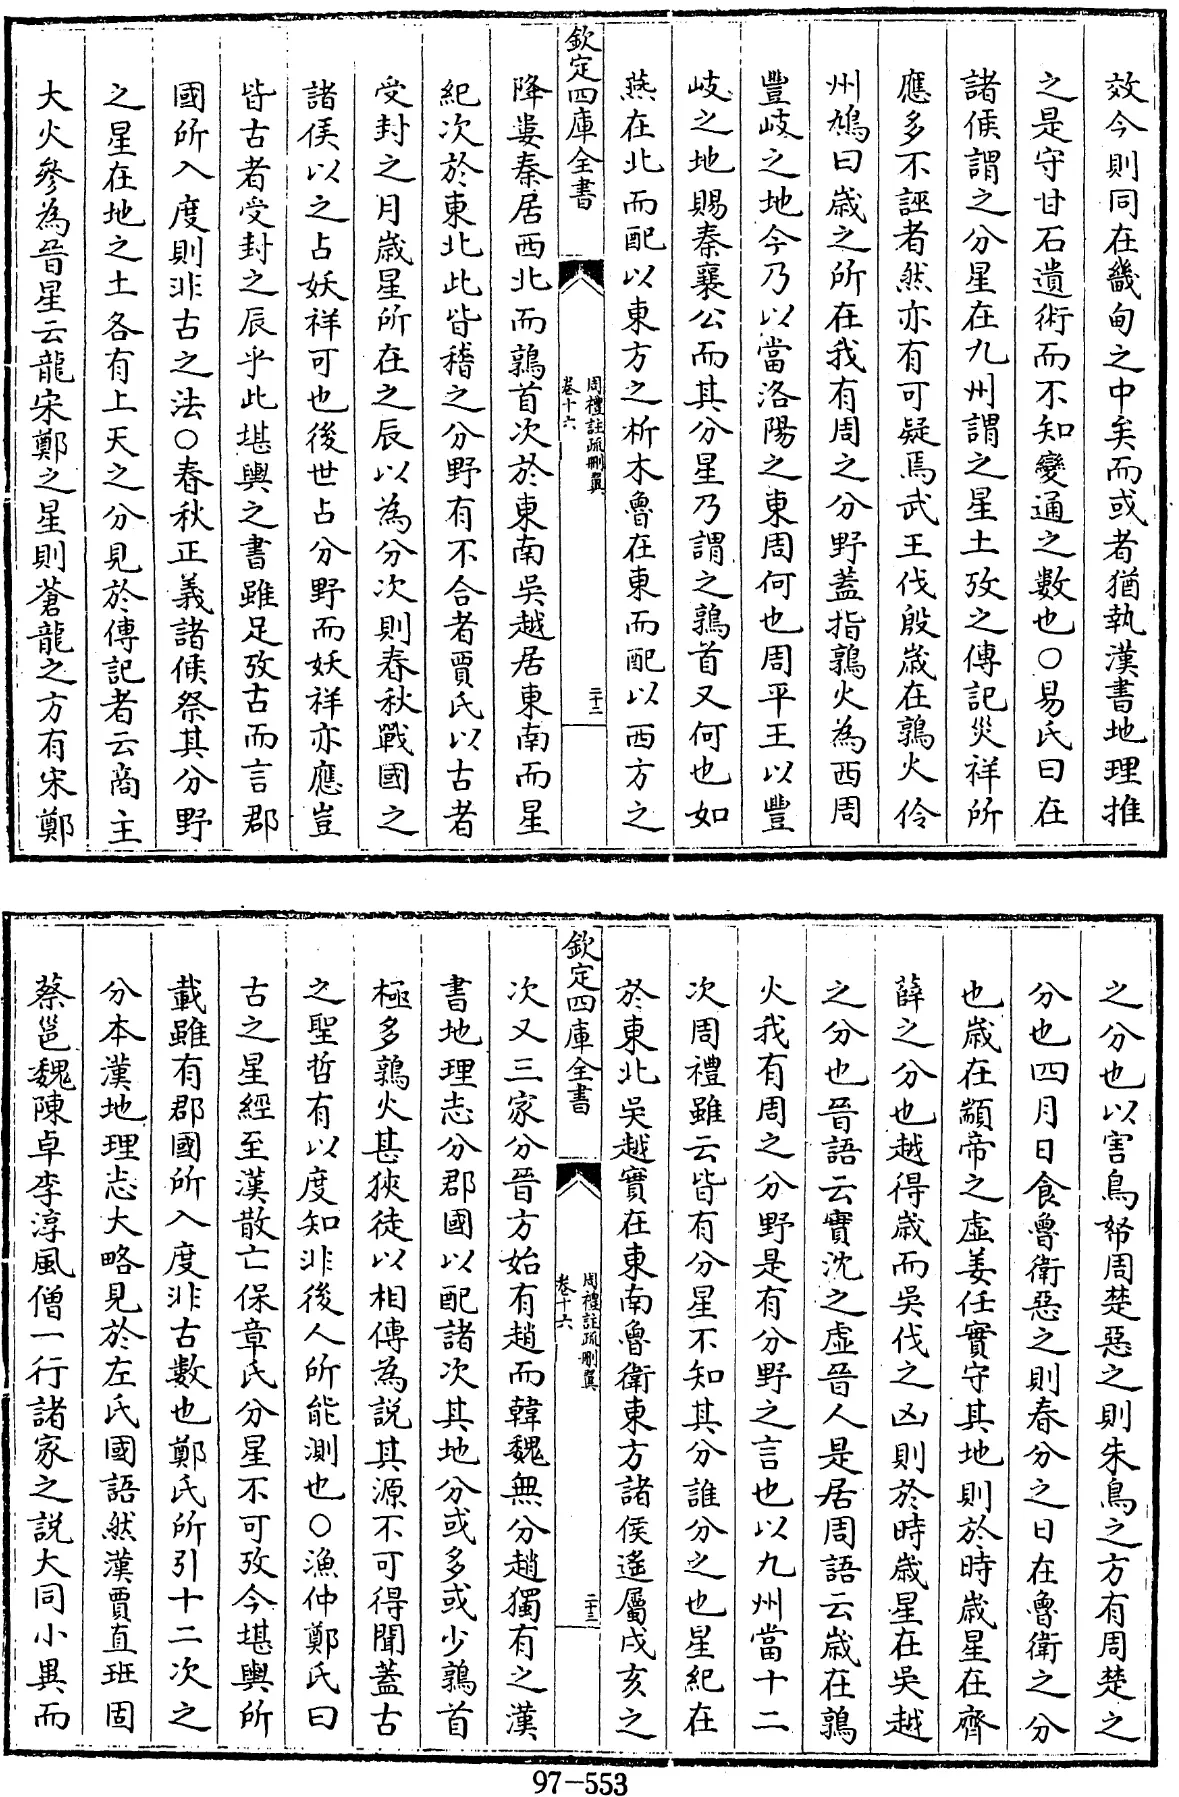 效今則同在畿甸之中矣而或者猶執漢書地理推
之是守甘石遺術而不知變通之數也○易氏曰在
諸侯謂之分星在九州謂之星土攷之傳記災祥所
應多不誣者然亦有可疑焉武王伐殷嵗在鶉火伶
州鳩曰嵗之所在我有周之分野蓋指鶉火為西周
豐岐之地今乃以當洛陽之東周何也周平王以豐
岐之地賜秦襄公而其分星乃謂之鶉首又何也如
燕在北而配以東方之析木魯在東而配以西方之
欽定四庫全書
周禮註疏刪翼
卷十六
二十二
降婁秦居西北而鶉首次於東南吳越居東南而星
紀次於東北此皆稽之分野有不合者賈氏以古者
受封之月嵗星所在之辰以為分次則春秋戰國之
諸侯以之占妖祥可也後世占分野而妖祥亦應豈
皆古者受封之辰乎此堪輿之書雖足攷古而言郡
國所入度則非古之法○春秋正義諸侯祭其分野
之星在地之土各有上天之分見於傳記者云商主
大火參為晉星云龍宋鄭之星則蒼龍之方有宋鄭
之分也以害鳥帑周楚惡之則朱鳥之方有周楚之
分也四月日食魯衛惡之則春分之日在魯衛之分
也嵗在顓帝之虛姜任實守其地則於時嵗星在齊
薛之分也越得嵗而吳伐之凶則於時嵗星在吳越
之分也晉語云實沈之虛晉人是居周語云嵗在鶉
火我有周之分野是有分野之言也以九州當十二
次周禮雖云皆有分星不知其分誰分之也星紀在
於東北吳越實在東南魯衛東方諸侯遙屬戌亥之
欽定四庫全書
周禮註疏刪翼
卷十六
二十三
次又三家分晉方始有趙而韓魏無分趙獨有之漢
書地理志分郡國以配諸次其地分或多或少鶉首
極多鶉火甚狹徒以相傳為說其源不可得聞蓋古
之聖哲有以度知非後人所能測也○漁仲鄭氏曰
古之星經至漢散亡保章氏分星不可攷今堪輿所
載雖有郡國所入度非古數也鄭氏所引十二次之
分本漢地理志大略見於左氏國語然漢賈直班固
蔡邕魏陳卓李淳風僧一行諸家之説大同小異而
97-553